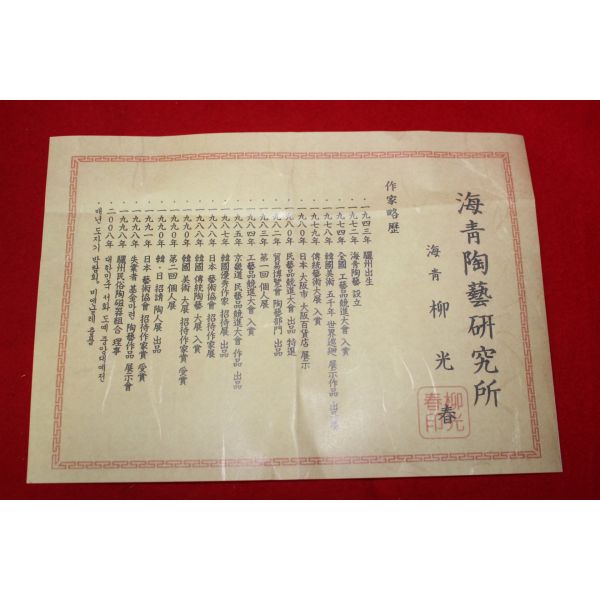 海青陶藝硏究所
海青 柳光春
柳光春印
作家略歷
·一九四三年 驪州出生
·一九七二年 海青陶藝 設立
·一九七四年 全國 工藝品競進大會 入賞
·一九七八年 韓國美術 五千年 世界巡廻 展示作品 出品展
·一九七九年 傳統藝術大展 入賞
·一九八〇年 日本 大阪市 大阪百貨店 展示
·一九八〇年 民藝品競進大會 出品 特選
·一九八二年 貿易博覽會 陶藝部門 出品
·一九八三年 第一回 個人展
·一九八四年 工藝品競進大會 入賞
·一九八五年 京畿道 民藝品競進大會 作品 出品
·一九八七年 韓國優秀作家 招待展 出品
·一九八八年 日本 藝術協會 招待作家展
·一九八八年 韓國 傳統陶藝 大展 入賞
·一九九〇年 韓國 美術 大展 招待作家賞 受賞
·一九九〇年 第二回 個人展
·一九九〇年 韓·日 招請 陶人展 出品
·一九九一年 日本 藝術協會 招待作家賞 受賞
·一九九八年 失業者 基金마련 陶藝作品 展示會
·一九九八年 驪州民俗陶磁器組合 理事
·二〇〇八年 대한민국 서화 도예 중앙대예전
·매년 도자기 박람회, 비엔날레 출품